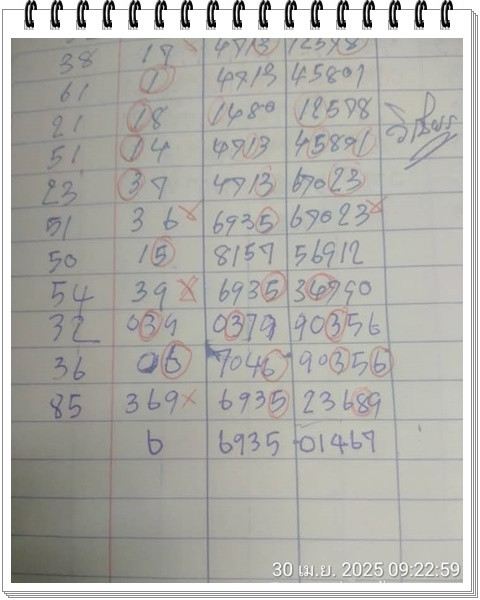 38 17 4713 12578
61 1 4713 45891
21 18 1480 12578
51 14 4713 45891
23 37 4713 67023
51 36 6935 67023
50 15 8157 56912
54 39 6935 34790
32 039 0379 90356
36 06 7046 90356
85 369 6935 23689
6 6935 01467
30 เม.ย. 2025 09:22:59